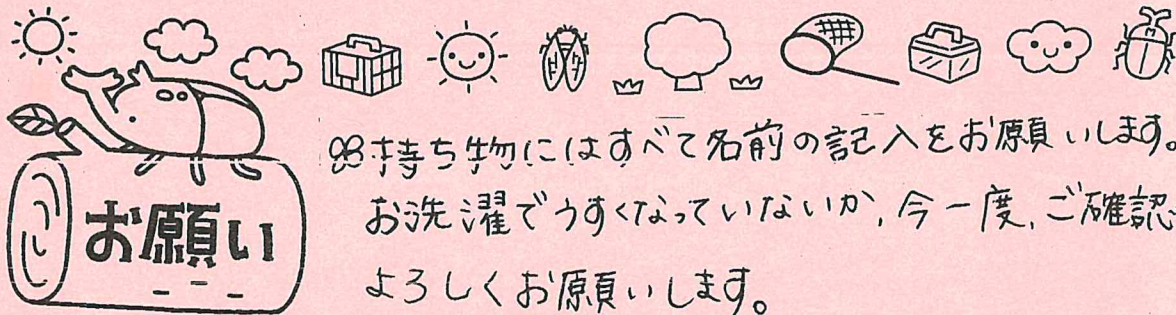 お願い
持ち物にはすべて名前の記入をお願いします。
お洗濯でうすくなっていないか、今一度、ご確認
よろしくお願いします。